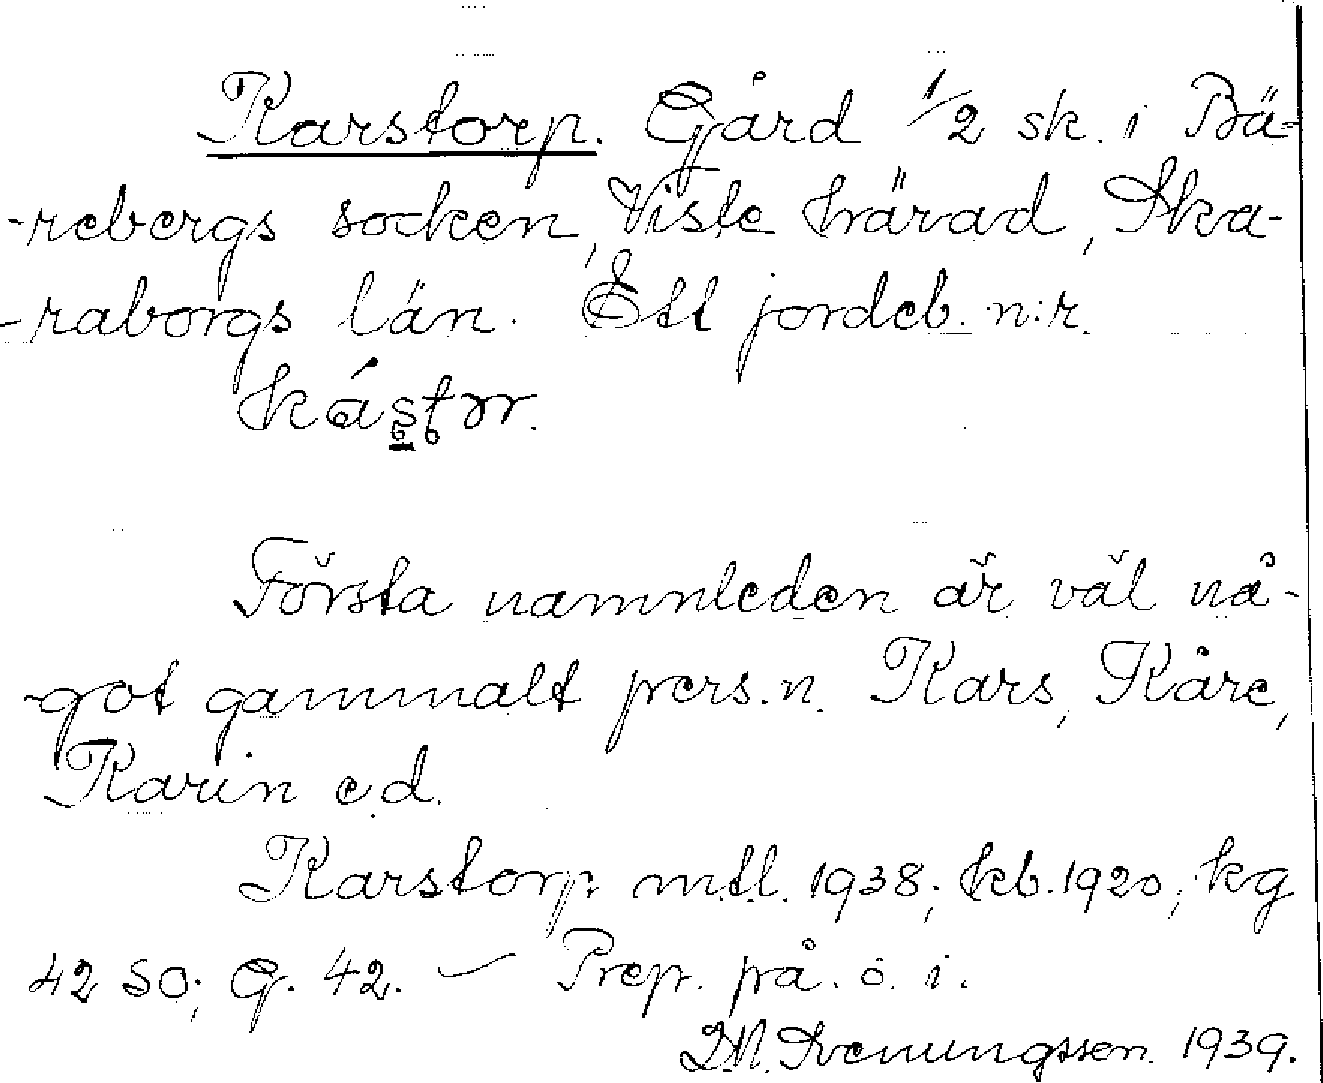 Karstorp. Gård 1/2 sk. i Bä-
-rebergs socken, Viste härad, Ska-
-raborgs län. Ett jordeb. n:r.
kástɔr.
Första namnleden är väl nå-
-got gammalt pers.n. Kars, Kåre,
Karin e.d.
Karstorp mtl. 1938; kb. 1920; kg
42 SO; G. 42. — Prep. på. o. i.
Svenungsson 1939.